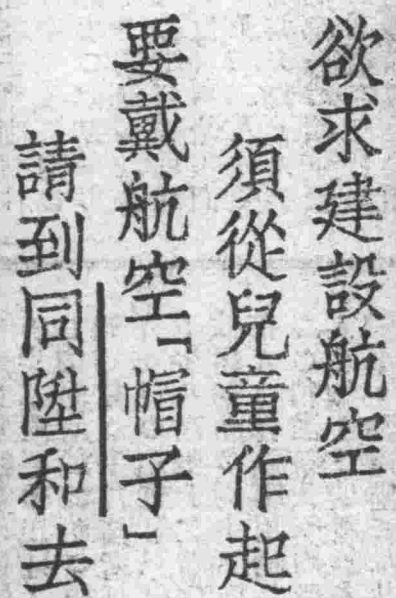 欲求建設航空
須從兒童作起
要戴航空「帽子」
請到同陞和去